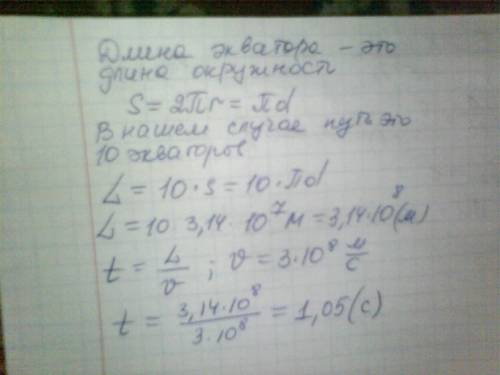 Длина экватора - это
длина окружность
S = 2Пr = Пd
В нашем случае путь это
10 экваторов
L = 10 · S = 10 · Пd
L = 10 · 3,14 · 10⁷ м = 3,14 · 10⁸ (м)
t = L/υ ; υ = 3 · 10⁸ м/с
t = 3,14 · 10⁸ / 3 · 10⁸ = 1,05 (с)